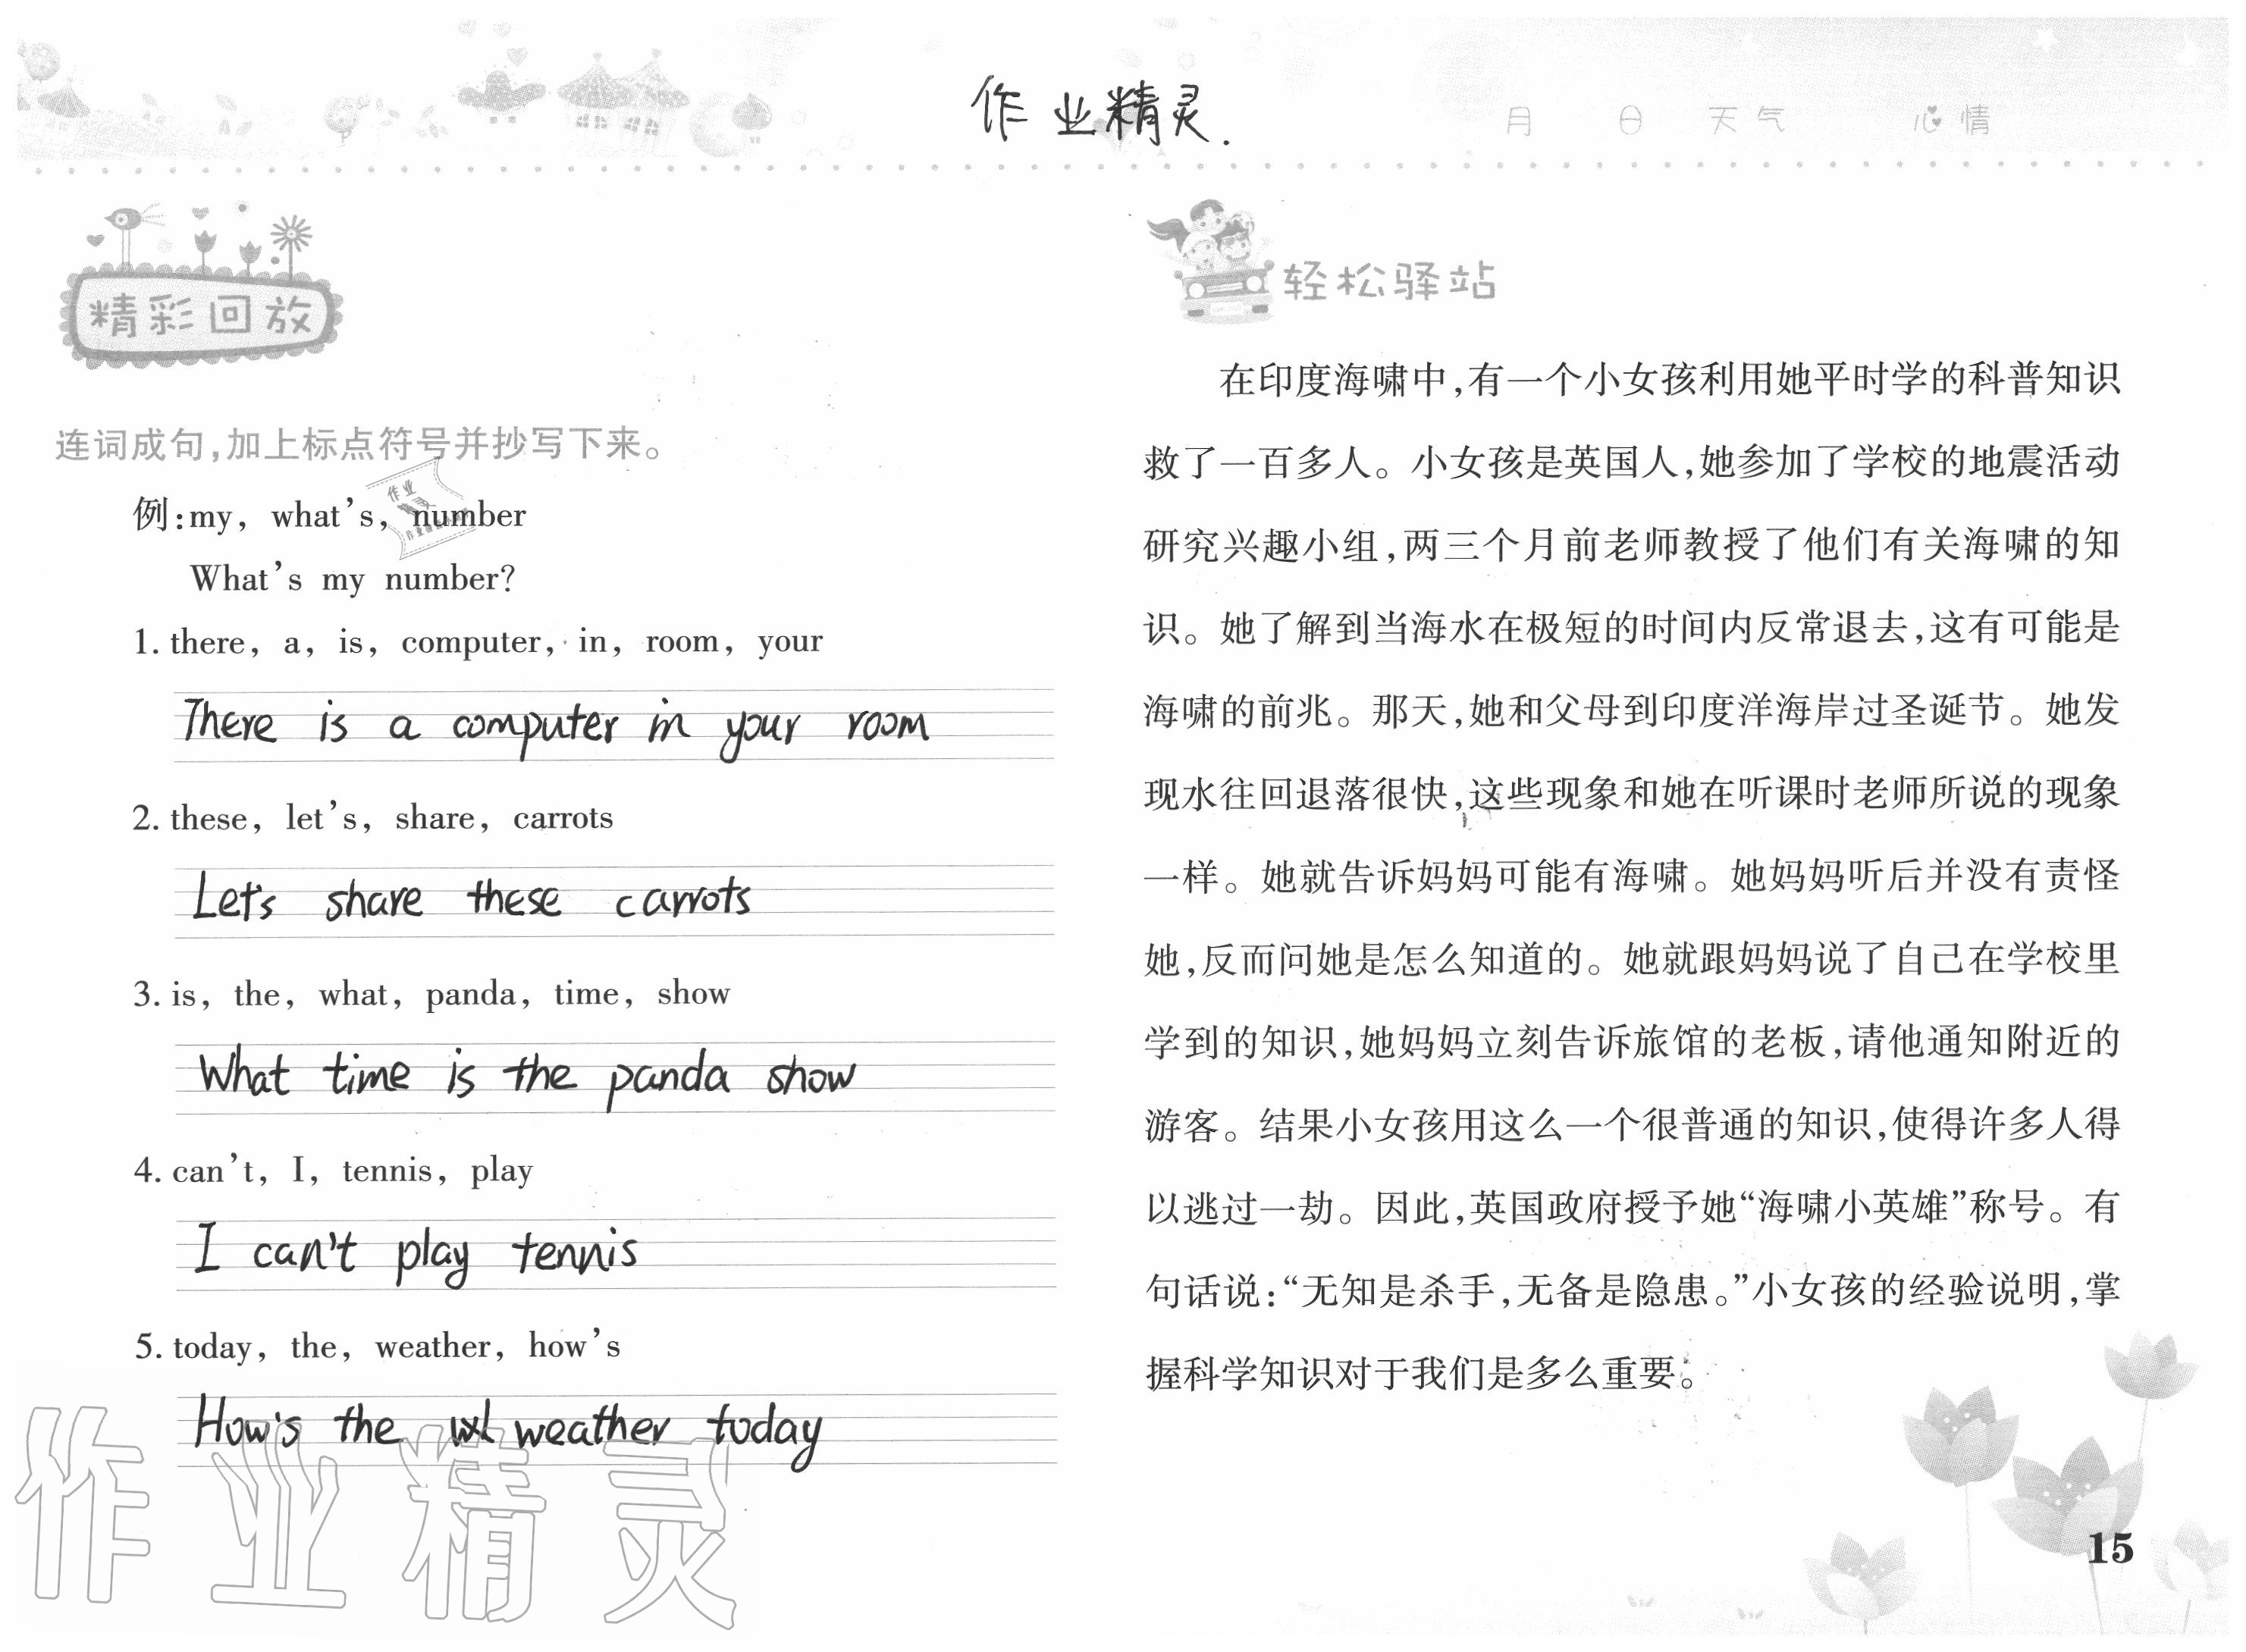 作业精灵.
月 日 天气 心情
精彩回放
连词成句,加上标点符号并抄写下来。
例:my, what's, number
What's my number?
1. there, a, is, computer, in, room, your
There is a computer in your room
2. these, let's, share, carrots
Let's share these carrots
3. is, the, what, panda, time, show
What time is the panda show
4. can't, I, tennis, play
I can't play tennis
5. today, the, weather, how's
How's the weather today
作业精灵
轻松驿站
在印度海啸中,有一个小女孩利用她平时学的科普知识
救了一百多人。小女孩是英国人,她参加了学校的地震活动
研究兴趣小组,两三个月前老师教授了他们有关海啸的知
识。她了解到当海水在极短的时间内反常退去,这有可能是
海啸的前兆。那天,她和父母到印度洋海岸过圣诞节。她发
现水往回退落很快,这些现象和她在听课时老师所说的现象
一样。她就告诉妈妈可能有海啸。她妈妈听后并没有责怪
她,反而问她是怎么知道的。她就跟妈妈说了自己在学校里
学到的知识,她妈妈立刻告诉旅馆的老板,请他通知附近的
游客。结果小女孩用这么一个很普通的知识,使得许多人得
以逃过一劫。因此,英国政府授予她“海啸小英雄”称号。有
句话说:“无知是杀手,无备是隐患。”小女孩的经验说明,掌
握科学知识对于我们是多么重要。
15